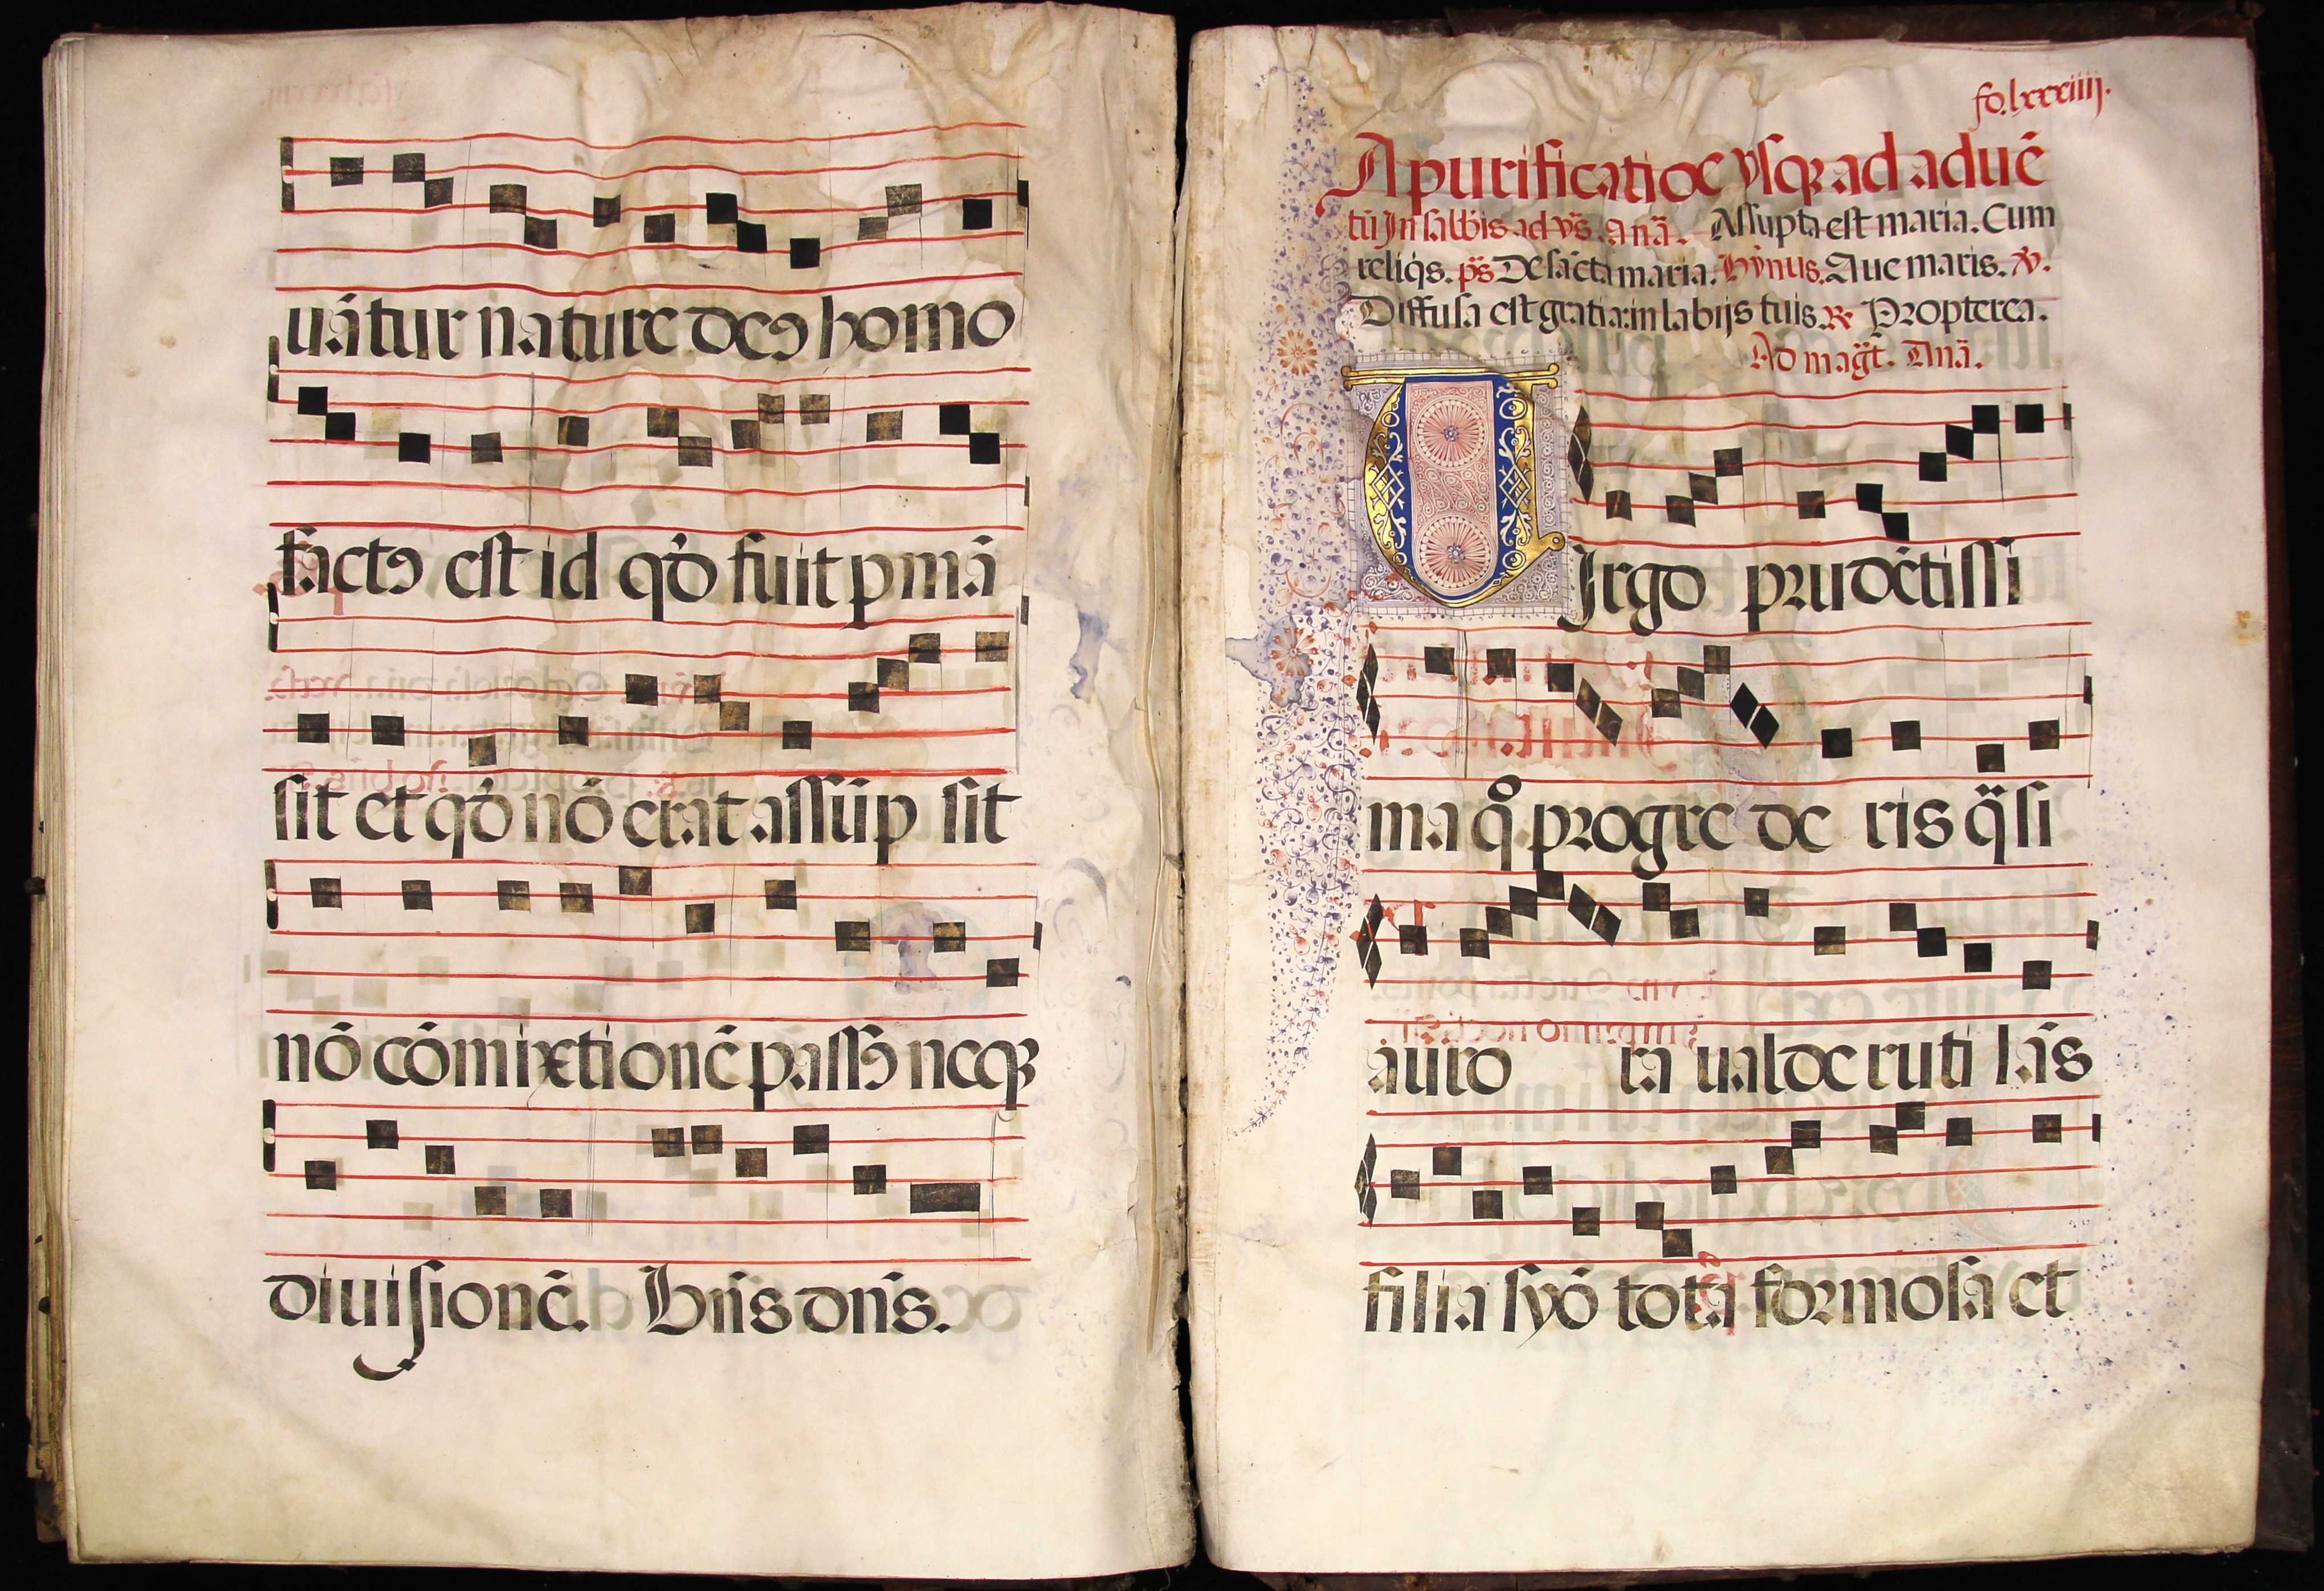 uā tur nature deꝰ homo
factꝰ est id qd̄ fuit pmā
sit et qd̄ nō erat assūp sit
nō cōmixtionē passꝰ neqꝫ
diuisionē. Bn̄s dn̄s.
fo. lxxxiiij.
A purificatiōe vsqꝫ ad aduē
tū In sabb̄is ad vs̄. anā. Assūpta est maria. Cum
reliqs. ps̄ De sācta maria. Hȳnus. Aue maris. ℣.
Diffusa est gratia: in labijs tuis. ℟ Propterea.
Ad magt̄. Anā.
VIrgo prudētissi
ma qͦ progre de ris qͣ̄si
auro ra ualde ruti lās
filia syō tota formosa et